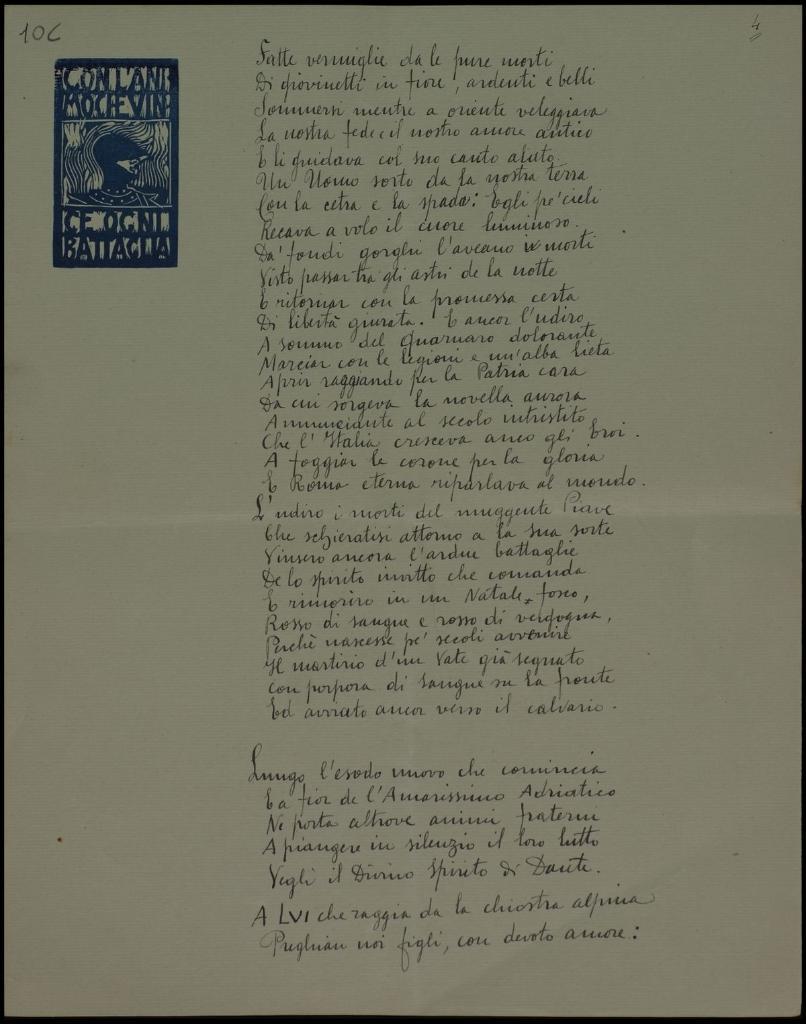 10C
4
CON L'ANI
MO CHE VIN
CE OGNI
BATTAGLIA
Fatte vermiglie da le pure morti
Di giovinetti in fiore, ardenti e belli
Sommersi mentre a oriente veleggiava
La nostra fede e il nostro amore antico
E li guidava col suo canto alato
Un Uomo sorto da la nostra terra
Con la cetra e la spada: Egli pe' cieli
Recava a volo il cuore luminoso.
Da' fondi gorghi l'aveano i morti
Visto passar tra gli astri de la notte
E ritornar con la promessa certa
Di libertà giurata. E ancor l'udiro
A sommo del Quarnaro dolorante
Marciar con le legioni e un'alba lieta
Aprir raggiando per la Patria cara
Da cui sorgeva la novella aurora
Annunciante al secolo intristito
Che l'Italia cresceva anco gli Eroi.
A foggiar le corone per la gloria
E Roma eterna riparlava al mondo.
L'udiro i morti del muggente Piave
Che schieratisi attorno a la sua sorte
Vinsero ancora l'ardue battaglie
De lo spirito invitto che comanda
E rimoriro in un Natale fosco,
Rosso di sangue e rosso di vergogna,
Perchè nascesse pe' secoli avvenire
Il martirio d'un Vate già segnato
Con porpora di sangue su la fronte
Ed avviato ancor verso il calvario.
Lungo l'esodo nuovo che comincia
E a fior de l'Amarissimo Adriatico
Ne porta altrove animi fraterni
A piangere in silenzio il loro lutto
Vegli il Divino Spirito di Dante.
A LVI che raggia da la chiostra alpina
Preghiam noi figli, con devoto amore: